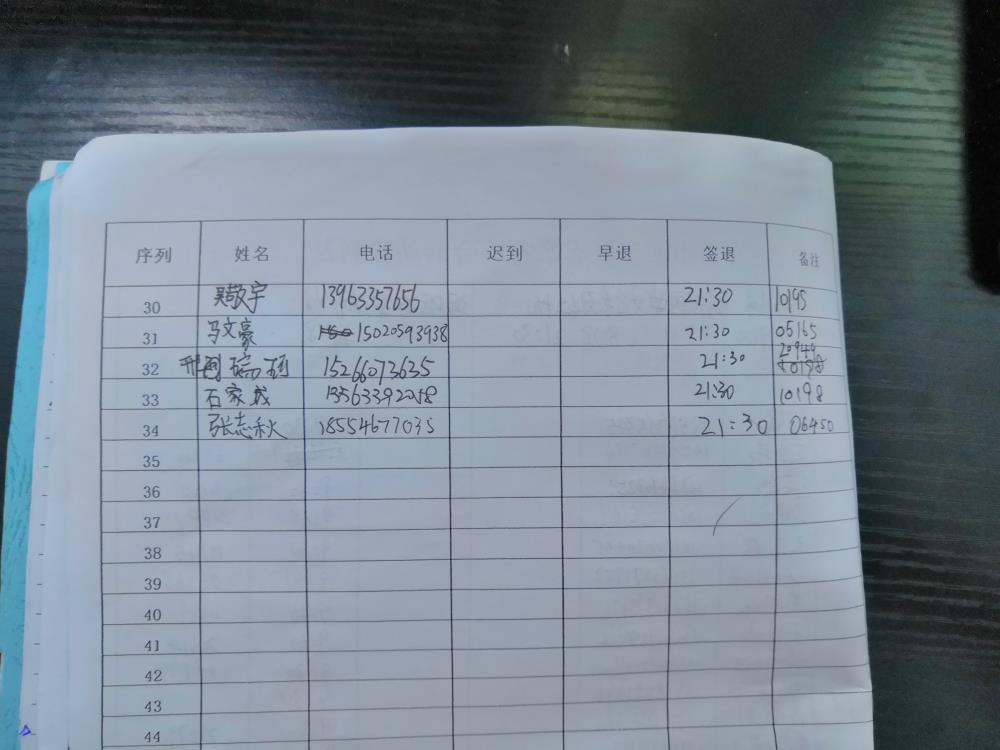 序列 姓名 电话 迟到 早退 签退 备注
30 吴敬宇 13963357656 21:30 10195
31 马文豪 15020593938 21:30 05165
32 15266073635 21:30 20944
33 石家成 13563392258 21:30 10198
34 张志秋 18554677035 21:30 06450
35
36
37
38
39
40
41
42
43
44